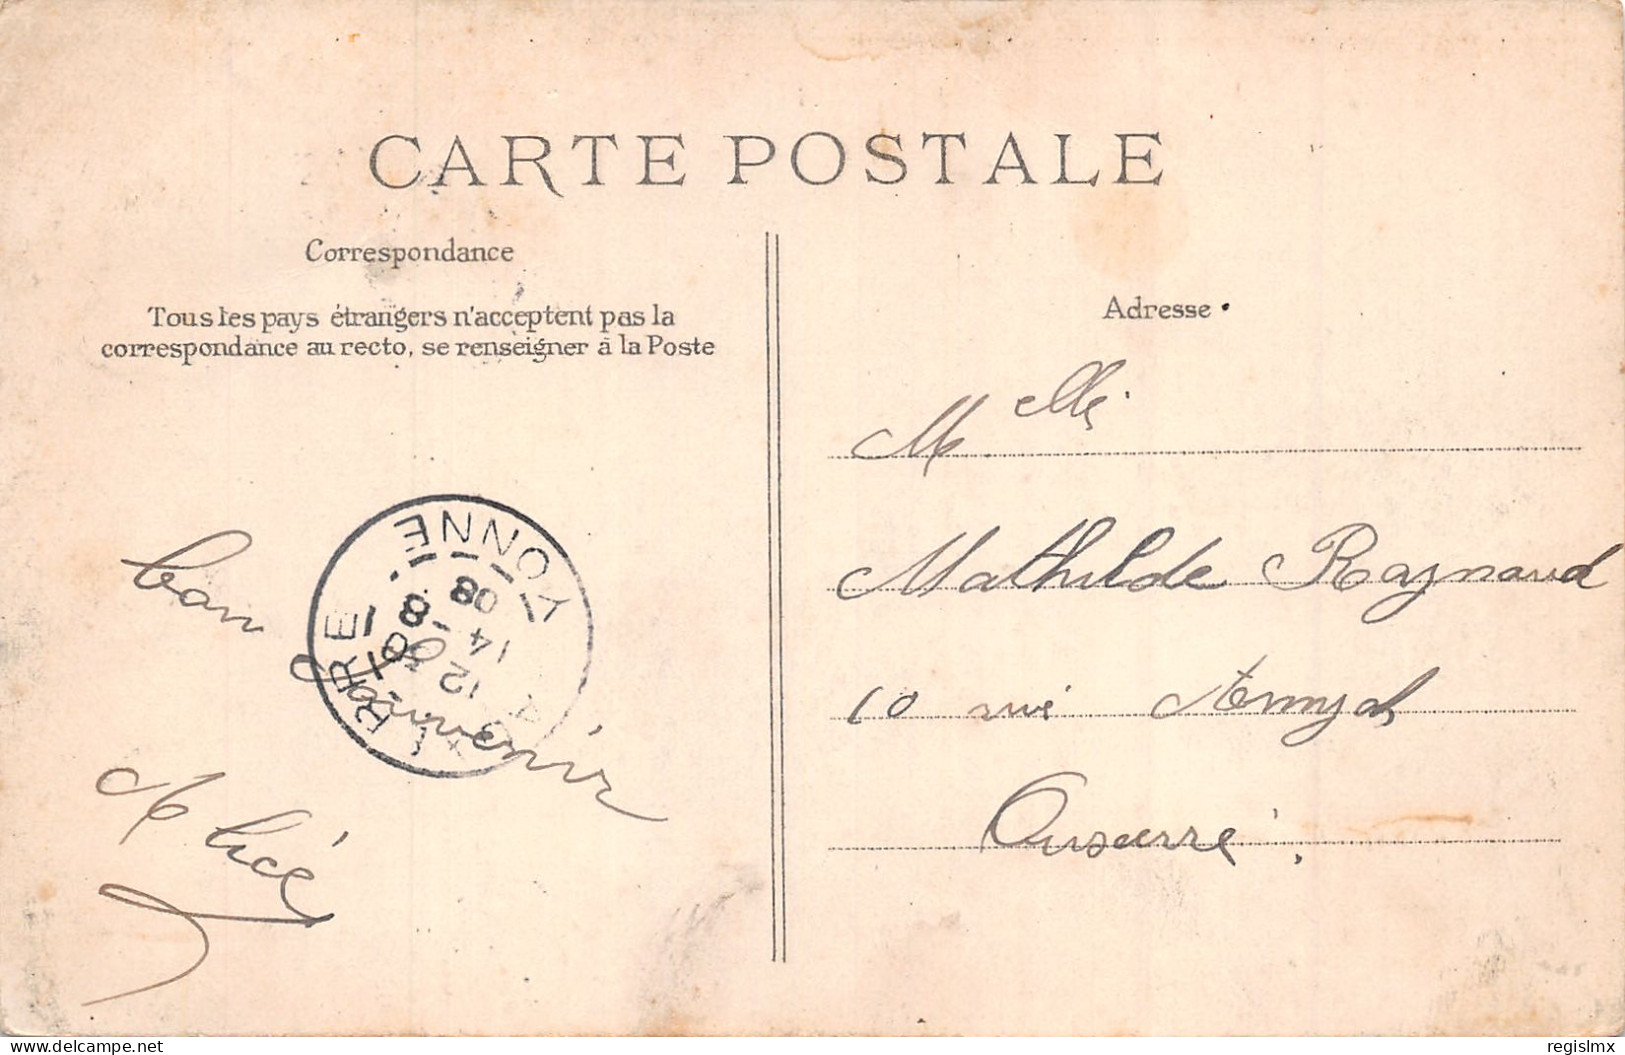 CARTE POSTALE
Correspondance
Tous les pays étrangers n'acceptent pas la
correspondance au recto, se renseigner à la Poste
bon
souvenir
Alice
YONNE
12 50
14 - 8
08
Adresse
Melle
Mathilde Raynaud
10 rue
Auxerre
www.delcampe.net
regislmx